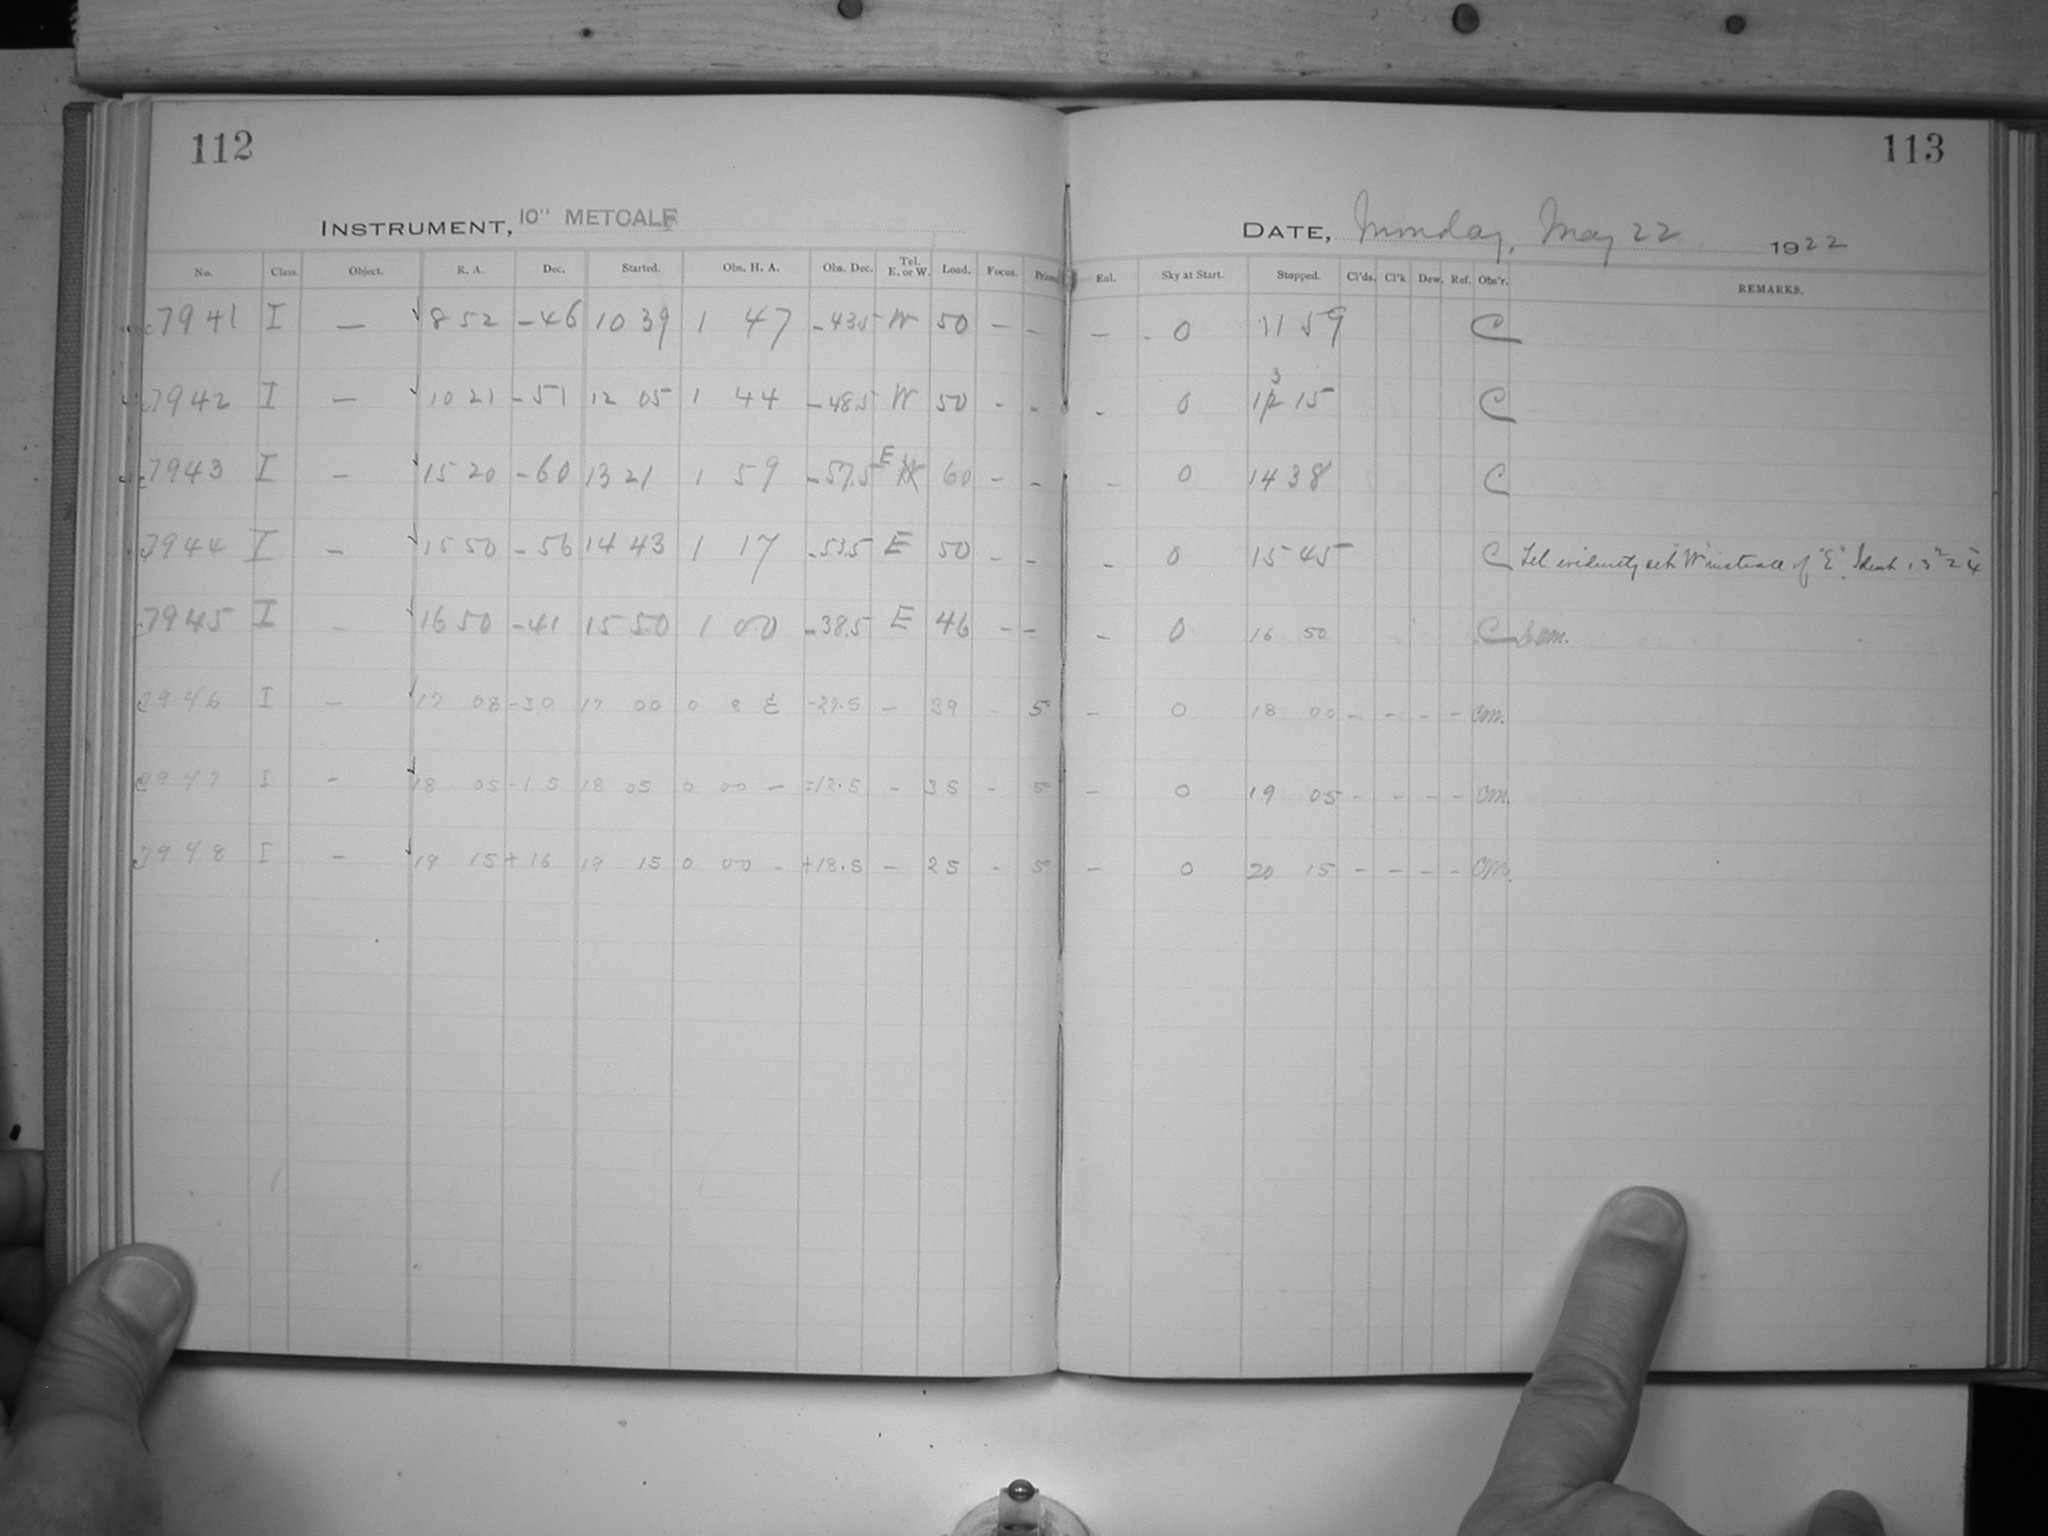 112
113
INSTRUMENT, 10" METCALF
DATE, Monday, May 22 1922
No. Class. Object. R. A. Dec. Started. Obs. H. A. Obs. Dec. Tel. E. or W. Load. Focus. Prism Enl. Sky at Start. Stopped. Cl'ds. Cl'k Dew. Ref. Obs'r. REMARKS.
c7941 I — 8 52 -46 10 39 1 47 -43.5 W 50 - - - 0 11 59 C
c7942 I — 10 21 -51 12 05 1 44 -48.5 W 50 - - - 0 13 15 C
c7943 I - 15 20 -60 13 21 1 59 -57.5 E W 60 - - - 0 14 38 C
c7944 I - 15 50 -56 14 43 1 17 -53.5 E 50 - - - 0 15 45 C Tel evidently set "W" instead of "E".
c7945 I - 16 50 -41 15 50 1 00 -38.5 E 46 - - - 0 16 50 C
c7946 I - 17 08 -30 17 00 0 8 E -27.5 - 39 - 5° - 0 18 00 - - - - CM.
c7947 I - 18 05 -15 18 05 0 00 - -12.5 - 35 - 5° - 0 19 05 - - - - CM.
c7948 I - 19 15 +16 19 15 0 00 - +18.5 - 25 - 5° - 0 20 15 - - - - CM.